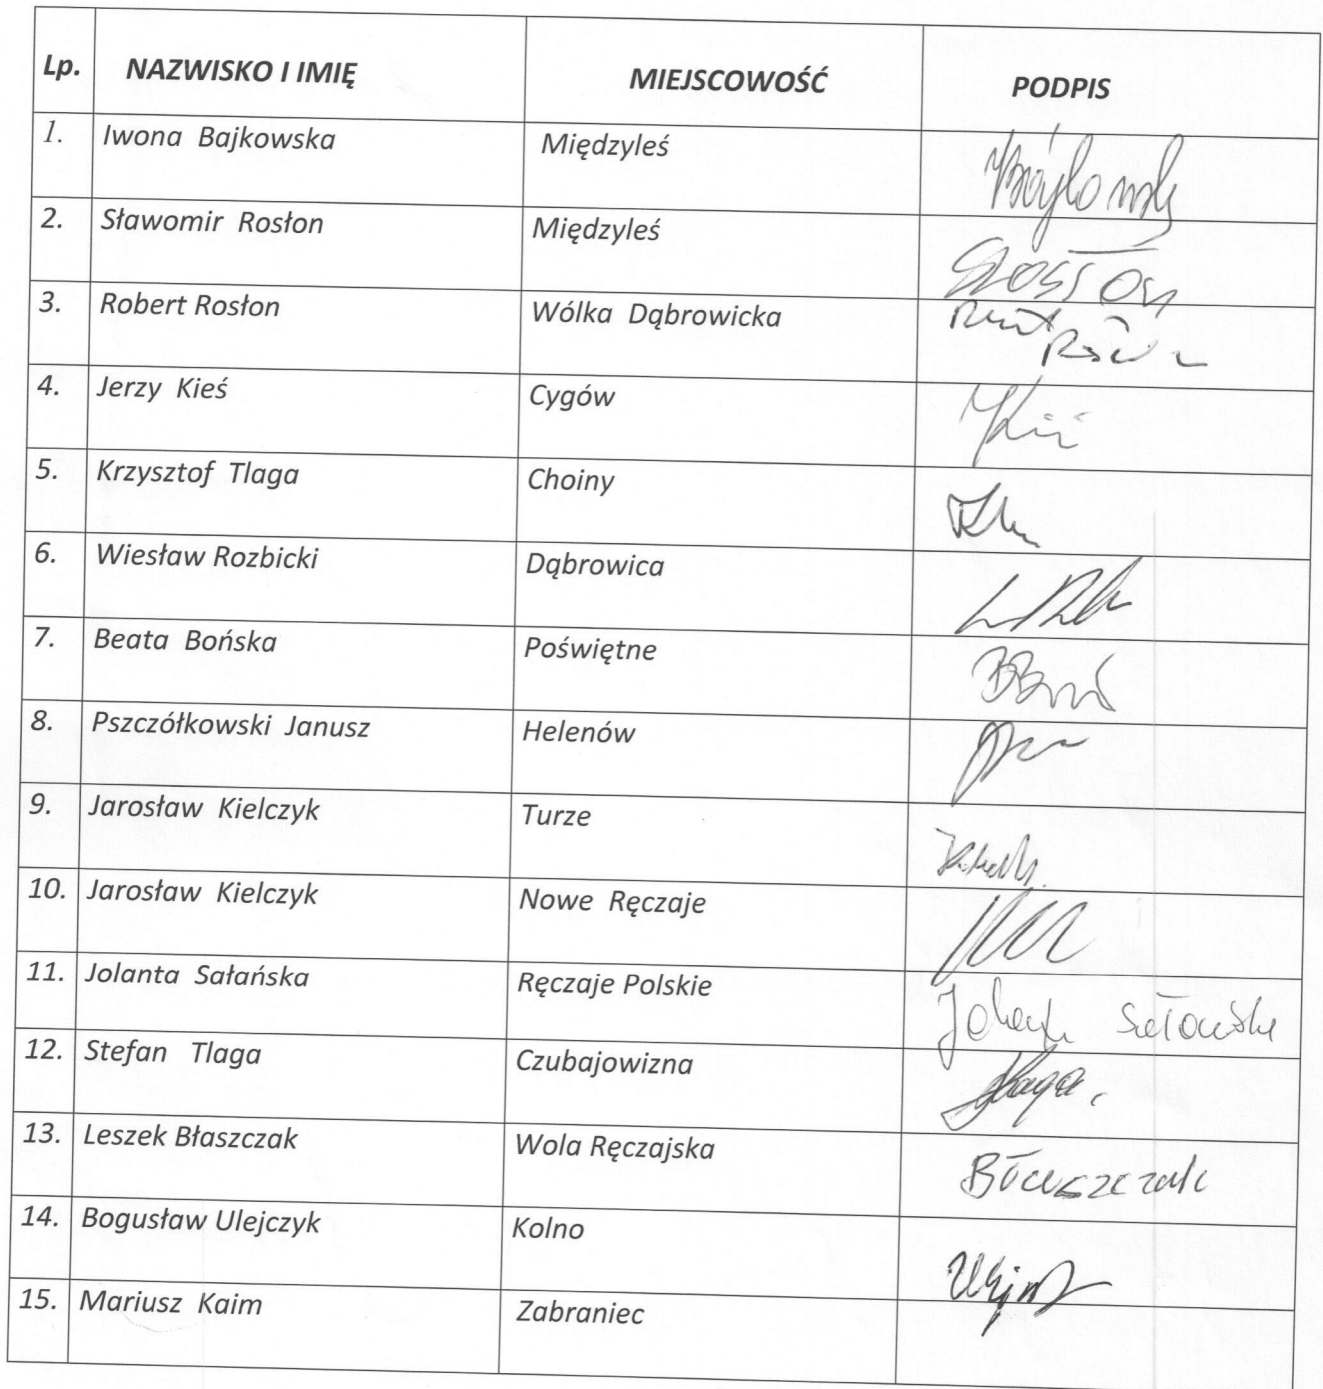 Lp. NAZWISKO I IMIĘ MIEJSCOWOŚĆ PODPIS
1. Iwona Bajkowska Międzyleś
2. Sławomir Rosłon Międzyleś
3. Robert Rosłon Wólka Dąbrowicka
4. Jerzy Kieś Cygów
5. Krzysztof Tlaga Choiny
6. Wiesław Rozbicki Dąbrowica
7. Beata Bońska Poświętne
8. Pszczółkowski Janusz Helenów
9. Jarosław Kielczyk Turze
10. Jarosław Kielczyk Nowe Ręczaje
11. Jolanta Sałańska Ręczaje Polskie
12. Stefan Tlaga Czubajowizna
13. Leszek Błaszczak Wola Ręczajska Błaszczak
14. Bogusław Ulejczyk Kolno
15. Mariusz Kaim Zabraniec